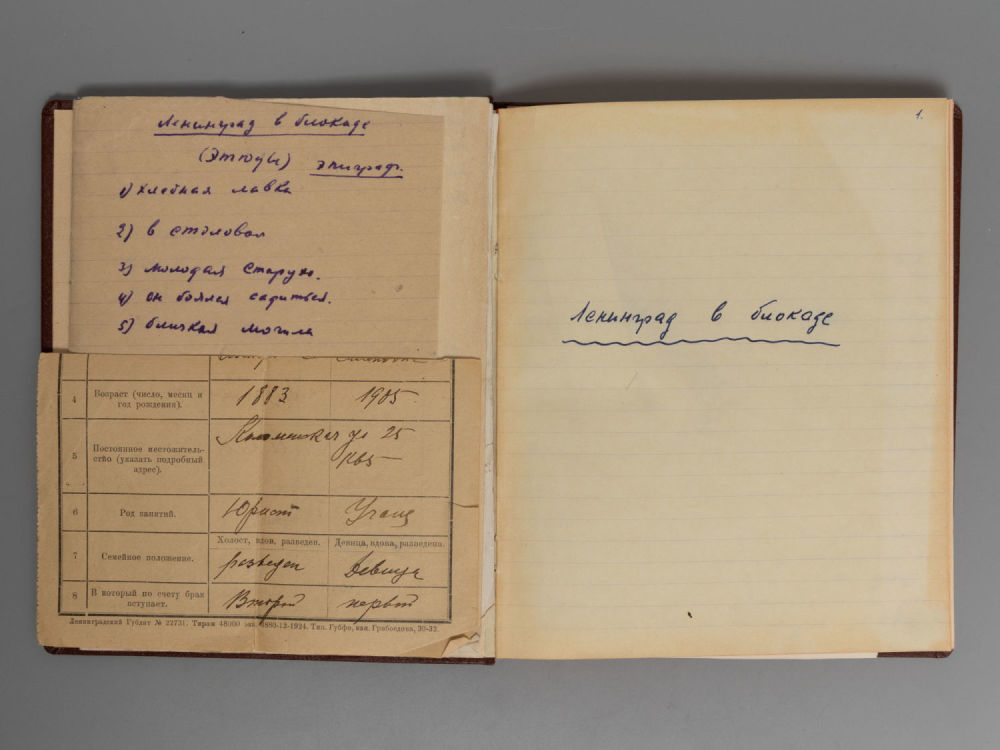 Ленинград в блокаде
(Этюды) эпиграф.
1) хлебная лавка
2) в столовой
3) молодая старуха.
4) он боялся садиться.
5) близкая могила
4 Возраст (число, месяц и год рождения). 1883 1905
5 Постоянное местожительство (указать подробный адрес). Коломенская ул 25
кв 5
6 Род занятий. Юрист Учащ
Холост, вдов, разведен. Девица, вдова, разведена.
7 Семейное положение. разведен Девица
8 В который по счету брак вступает. Второй первый
Ленинградский Гублит № 22731. Тираж 48000 экз. 1880-12-1924. Тип. Губфо, кан. Грибоедова, 30-32.
1.
Ленинград в блокаде